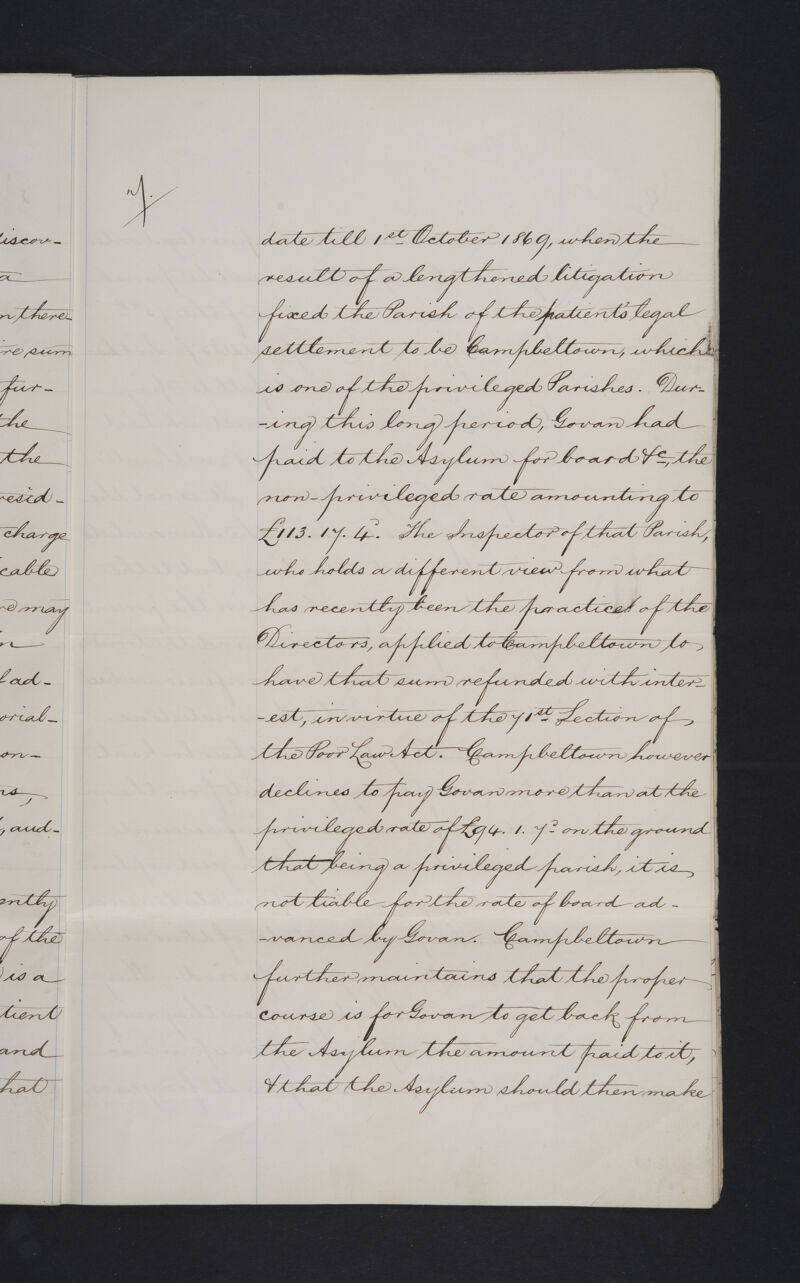 7.
date till 1st October 1869, when the
result of a lengthened litigation
fixed the Parish of the patient's legal
settlement to be Campbeltown, which
is one of the privileged Parishes. Dur-
-ing this long period, Govan had
paid to the Asylum for board &c, the
non-privileged rate amounting to
£113. 17. 4. The Inspector of that Parish,
who holds a different view from what
has recently been the practice of the
Directors, applied to Campbeltown to
have that sum refunded with inter-
-est, in virtue of the 71st Section of
the Poor Law Act. Campbeltown however
declines to pay Govan more than at the
privileged rate of £94. 1. 7d on the ground
that being a privileged parish, it is
not liable for the rate of board ad-
-vanced by Govan. Campbeltown
further maintains that the proper
course is for Govan to get back from
the Asylum the amount paid to it,
& that the Asylum should then make
iscov-
a
n there
re sum
fur-
the
the
resid-
charge
cable
re may
n
ad-
orial-
on-
ns,
, aud-
ently
of the
is a
tient
and
hat